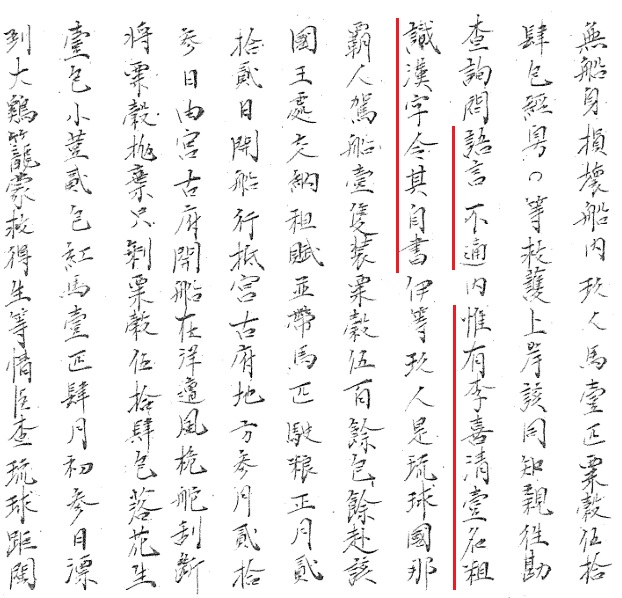 無船身損壞船内玖人馬壹匹粟穀伍拾
肆包經臭〇等救護上岸該同知親徃勘
查詢問語言不通内惟有李喜清壹名粗
識漢字令其自書伊等玖人是琉球國那
霸人駕船壹隻裝粟穀伍百餘包餘赴該
國王處交納租賦並帶馬匹馱粮正月貳
拾貳日開船行抵宮古府地方叁月貳拾
叁日由宮古府開船在洋遭風桅舵刮斷
將粟穀拋棄只剩粟穀伍拾肆包落花生
壹包小荳貳包紅馬壹匹肆月初叁日漂
到大鷄籠蒙救得生等情臣查琉球距閩